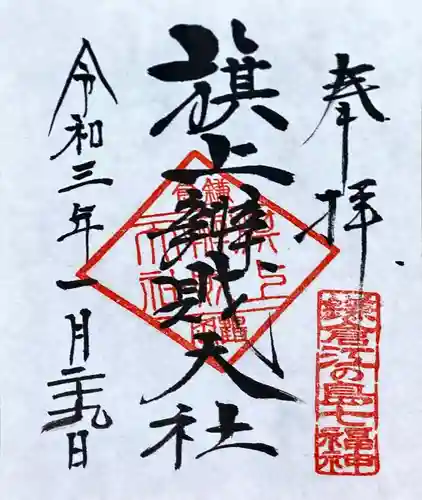 奉拝
鎌倉江の島七福神
旗上辨財天社
令和三年一月二十九日